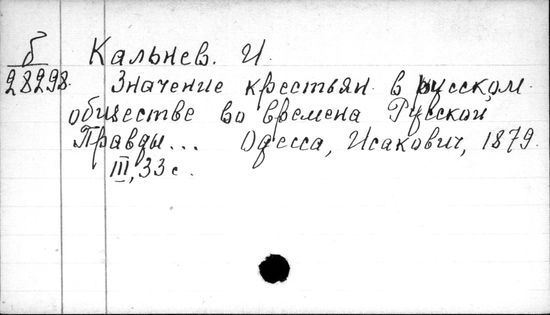 Б
28298.
Кальнев. И.
Значение крестьян в русском
обществе во времена Русской
Правды... Одесса, Исакович, 1879.
III, 33 с.